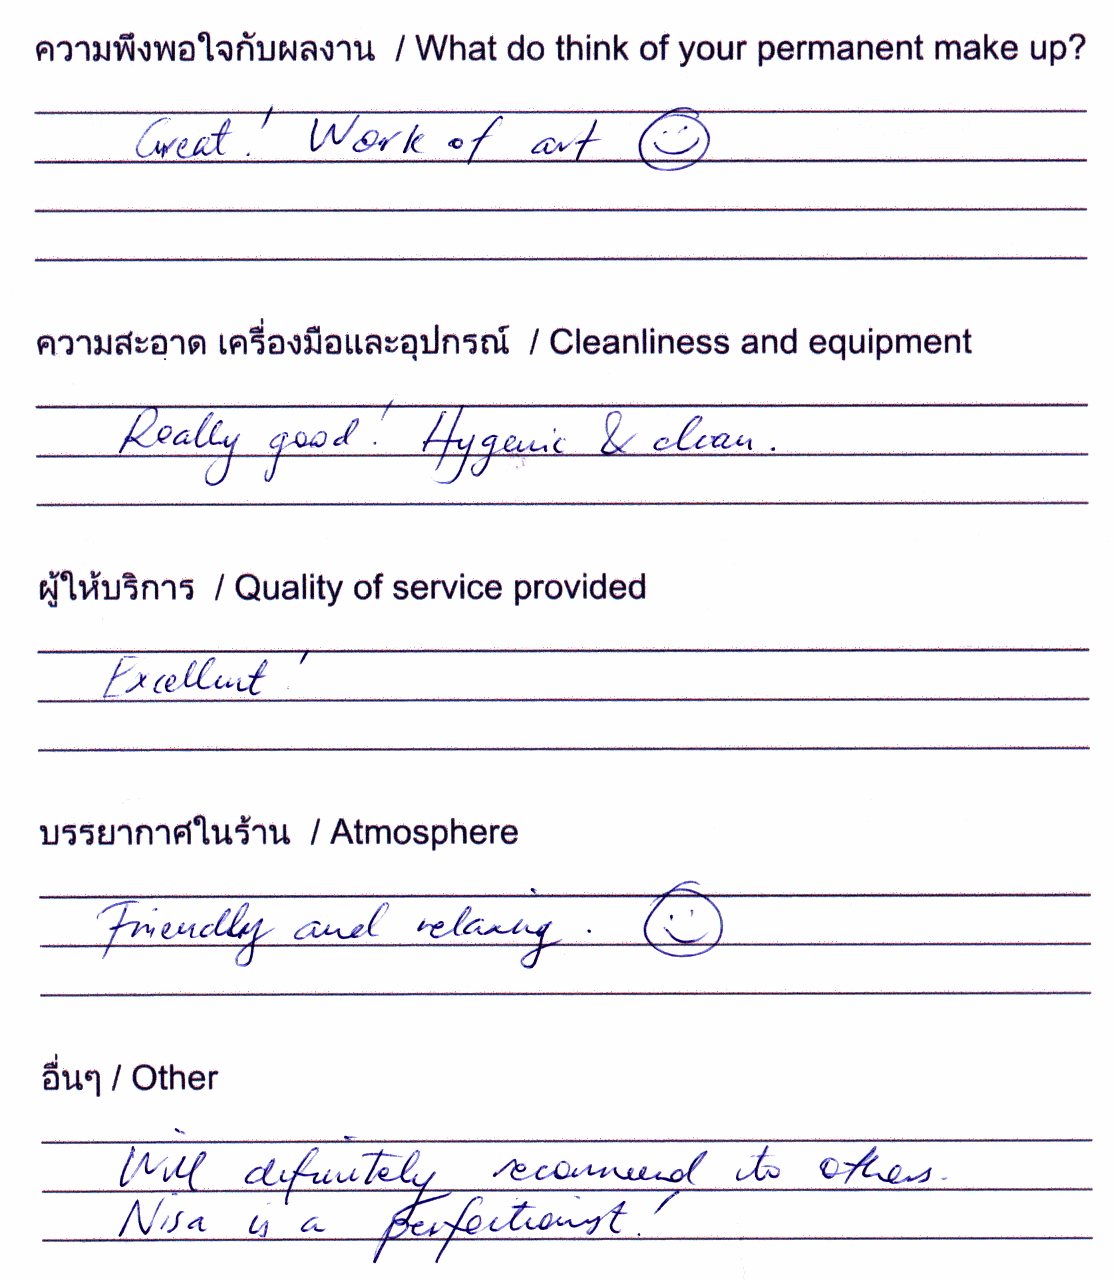 ความพึงพอใจกับผลงาน / What do think of your permanent make up?
Great! Work of art
ความสะอาด เครื่องมือและอุปกรณ์ / Cleanliness and equipment
Really good! Hygenic & clean.
ผู้ให้บริการ / Quality of service provided
Excellent!
บรรยากาศในร้าน / Atmosphere
Friendly and relaxing.
อื่นๆ / Other
Will definitely recommend to others.
Nisa is a perfectionist!